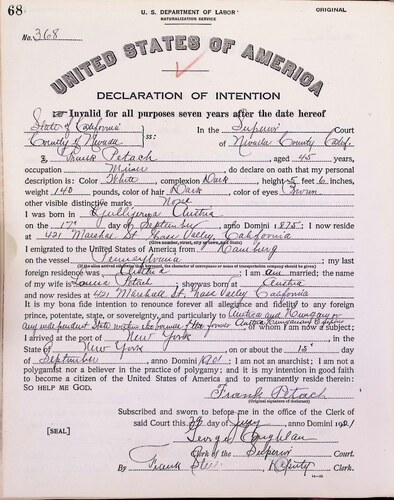 68
U. S. DEPARTMENT OF LABOR
NATURALIZATION SERVICE
ORIGINAL
No. 368
UNITED STATES OF AMERICA
DECLARATION OF INTENTION
Invalid for all purposes seven years after the date hereof
State of California
County of Nevada
ss:
In the Superior Court
of Nevada County Calif.
I, Frank Petach, aged 45 years,
occupation Miner, do declare on oath that my personal
description is: Color White, complexion Dark, height 5 feet 6 inches,
weight 140 pounds, color of hair Dark, color of eyes Brown
other visible distinctive marks None
I was born in Austria
on the 17 day of September, anno Domini 1875; I now reside
at 421 Marshal St Grass Valley, California
(Give number, street, city or town, and State.)
I emigrated to the United States of America from Hamburg
on the vessel Pennsylvania; my last
(If the alien arrived otherwise than by vessel, the character of conveyance or name of transportation company should be given)
foreign residence was Austria; I am married; the name
of my wife is Louise Petach; she was born at Austria
and now resides at 421 Marshall St, Grass Valley California
It is my bona fide intention to renounce forever all allegiance and fidelity to any foreign
prince, potentate, state, or sovereignty, and particularly to Austria and Hungary or
any independent State within the bounds of the former Austria Hungarian Empire, of whom I am now a subject;
I arrived at the port of New York, in the
State of New York, on or about the 15 day
of September, anno Domini 1901; I am not an anarchist; I am not a
polygamist nor a believer in the practice of polygamy; and it is my intention in good faith
to become a citizen of the United States of America and to permanently reside therein:
SO HELP ME GOD.
Frank Petach
(Original signature of declarant)
Subscribed and sworn to before me in the office of the Clerk of
said Court this day of July, anno Domini 1921
[SEAL]
George Coughlan
Clerk of the Superior Court.
By Frank Deputy Clerk.